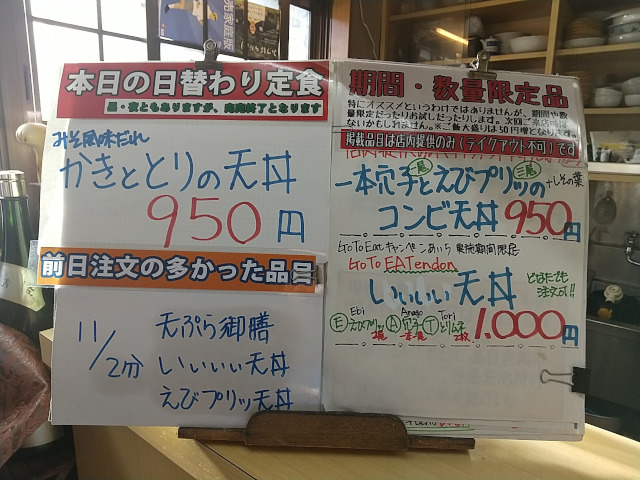 売家庭版
本日の日替わり定食
昼・夜ともありますが、完売終了となります
みそ風味だれ
かきととりの天丼
950円
前日注文の多かった品
11/2分
天ぷら御膳
いいいい天丼
えびプリッ天丼
期間・数量限定品
特にオススメというわけではありませんが、期間や数
量限定だったりお試しだったりします。次回ご来店時は
ないかもしれません。※ご飯大盛りは50円増となります。
掲載品目は店内提供のみ(テイクアウト不可)です
一本穴子とえびプリッの +しその葉
一尾 三尾
コンビ天丼 950円
GoToEatキャンペーンあいち 実施期間限定
GoTo EATendon
いいいい天丼
1.000円
Ebi Anago Tori
Ⓔえびプリッ Ⓐ穴子 Ⓣとりムネ